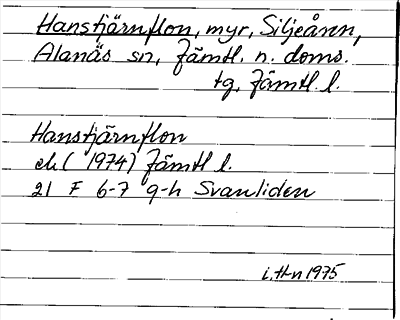 Hanstjärnflon, myr, Siljeånn,
Alanäs sn, Jämtl. n. doms.
tg, Jämtl. l.
Hanstjärnflon
ek (1974) Jämtl l.
21 F 6-7 g-h Svanliden
i, H-n 1975